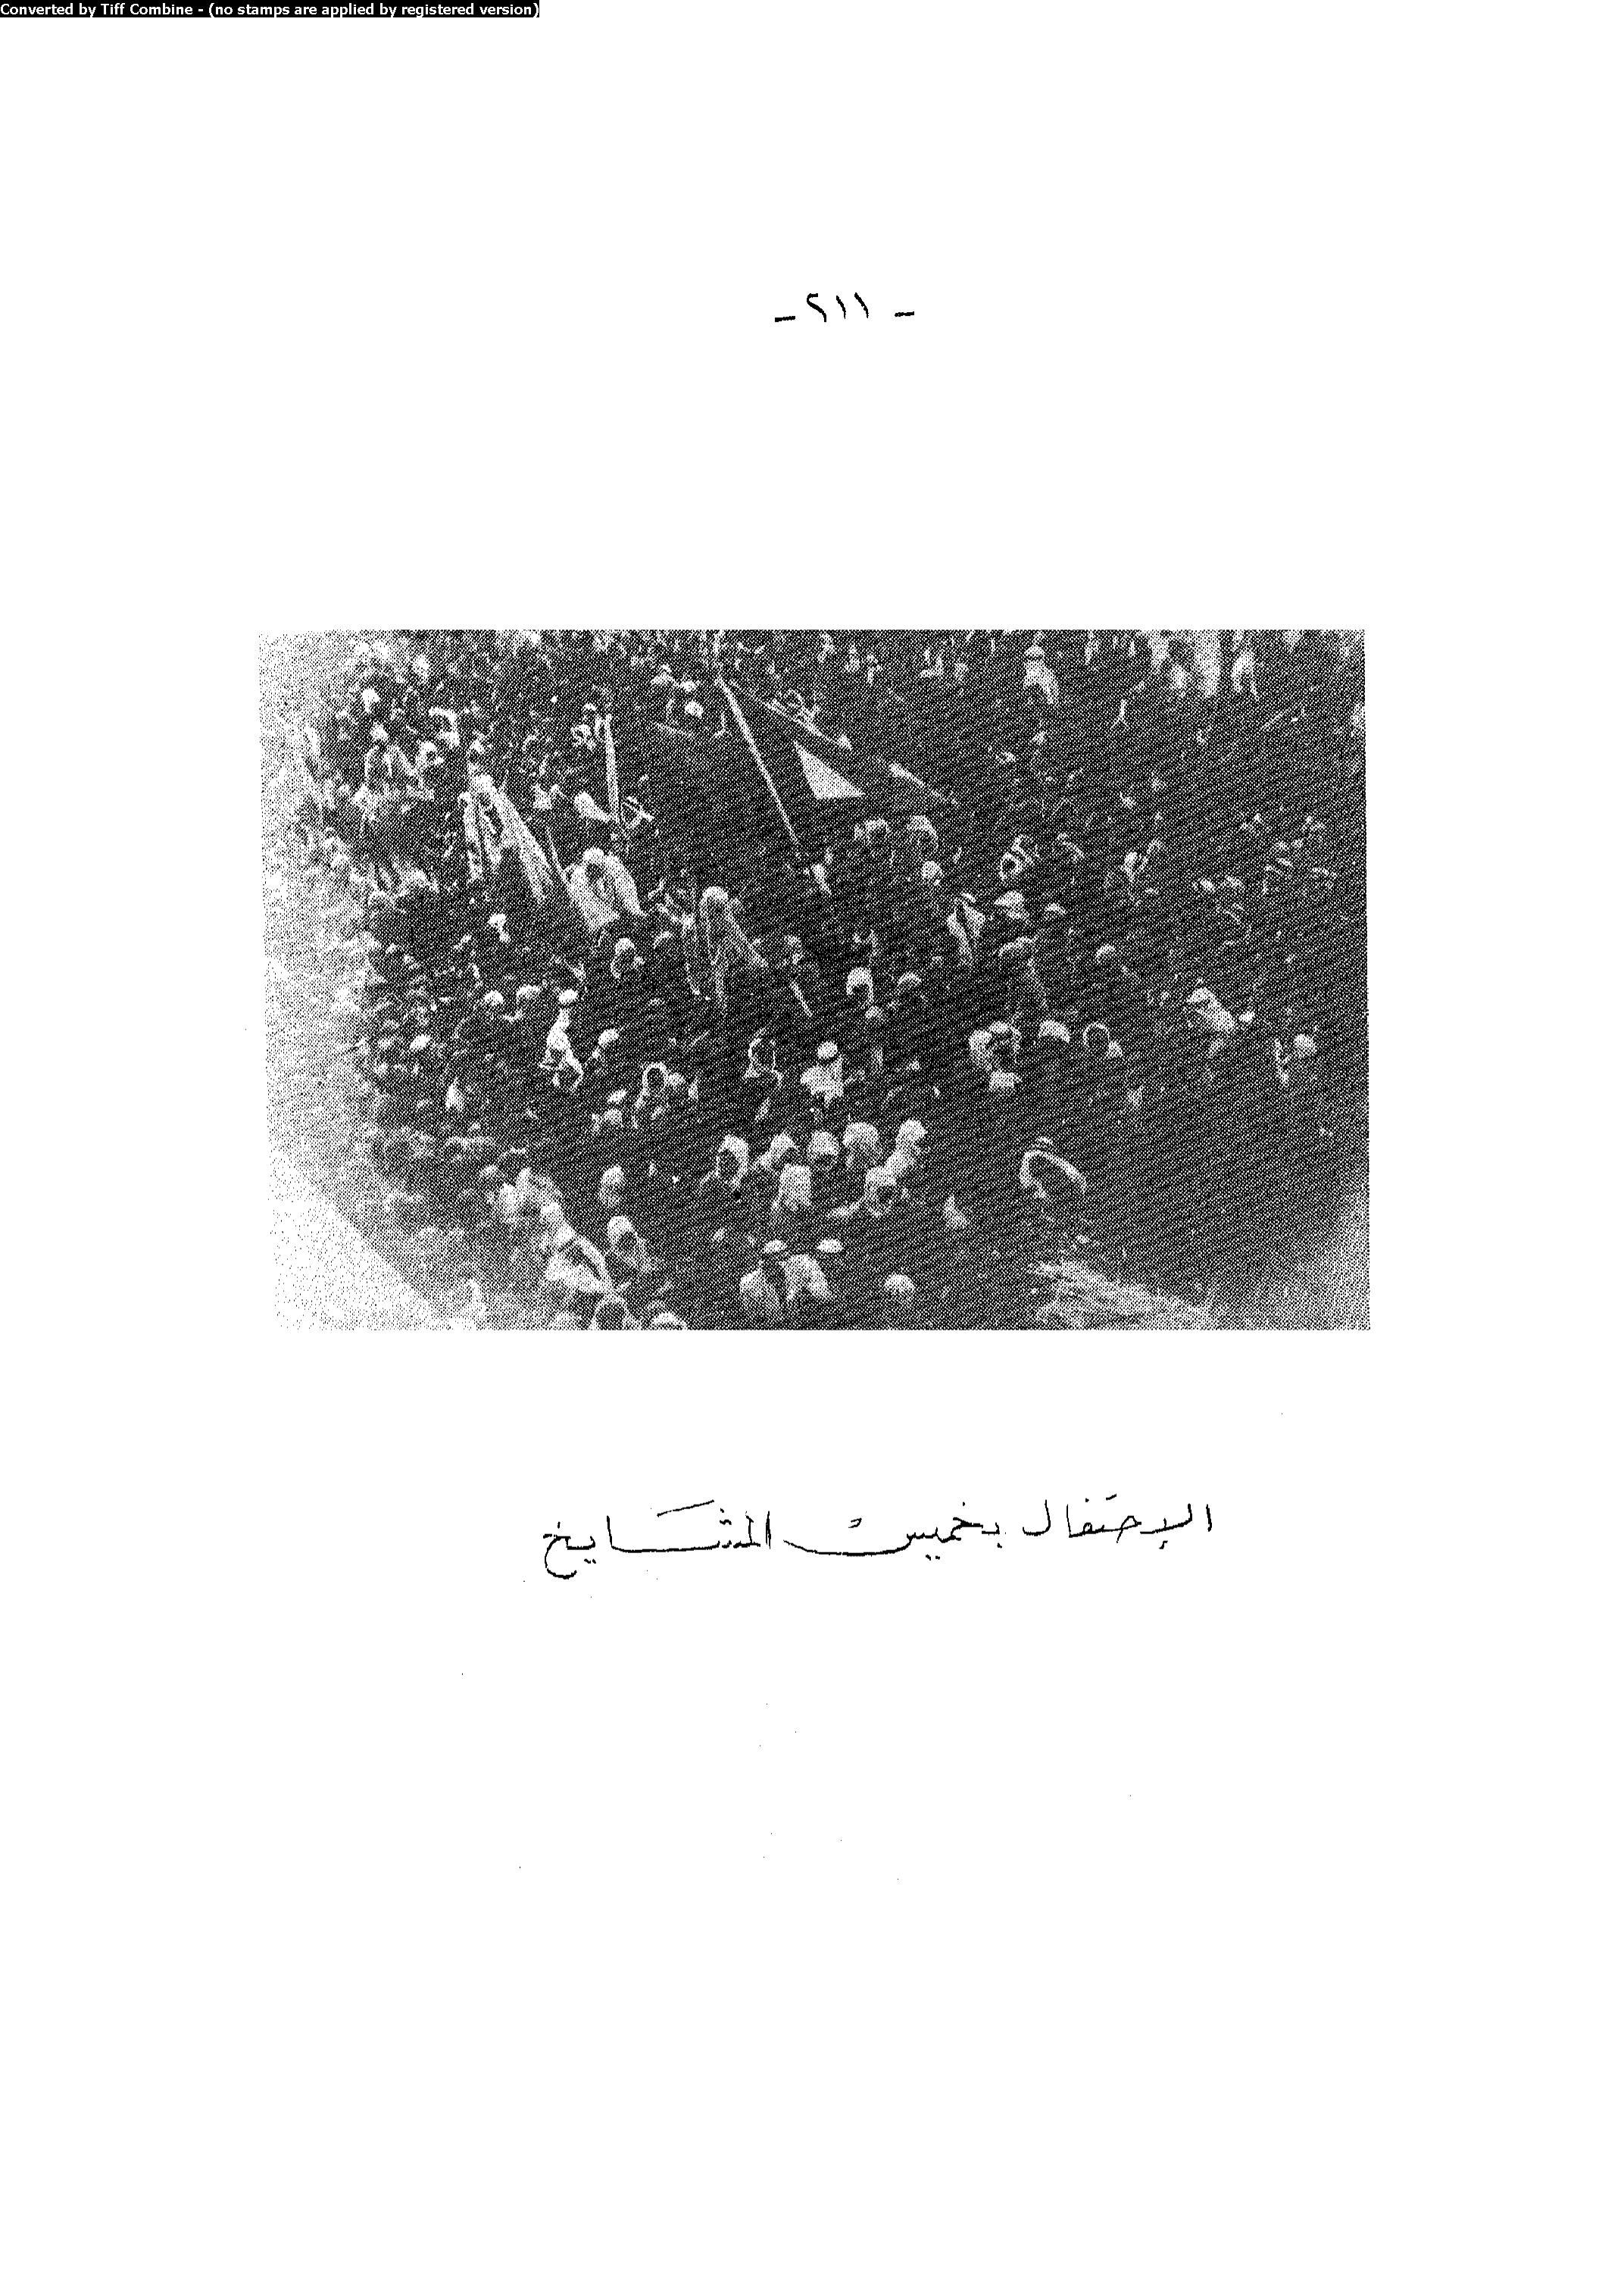 Converted by Tiff Combine - (no stamps are applied by registered version)
- ٢١١ -
الإحتفال بخميس المشايخ